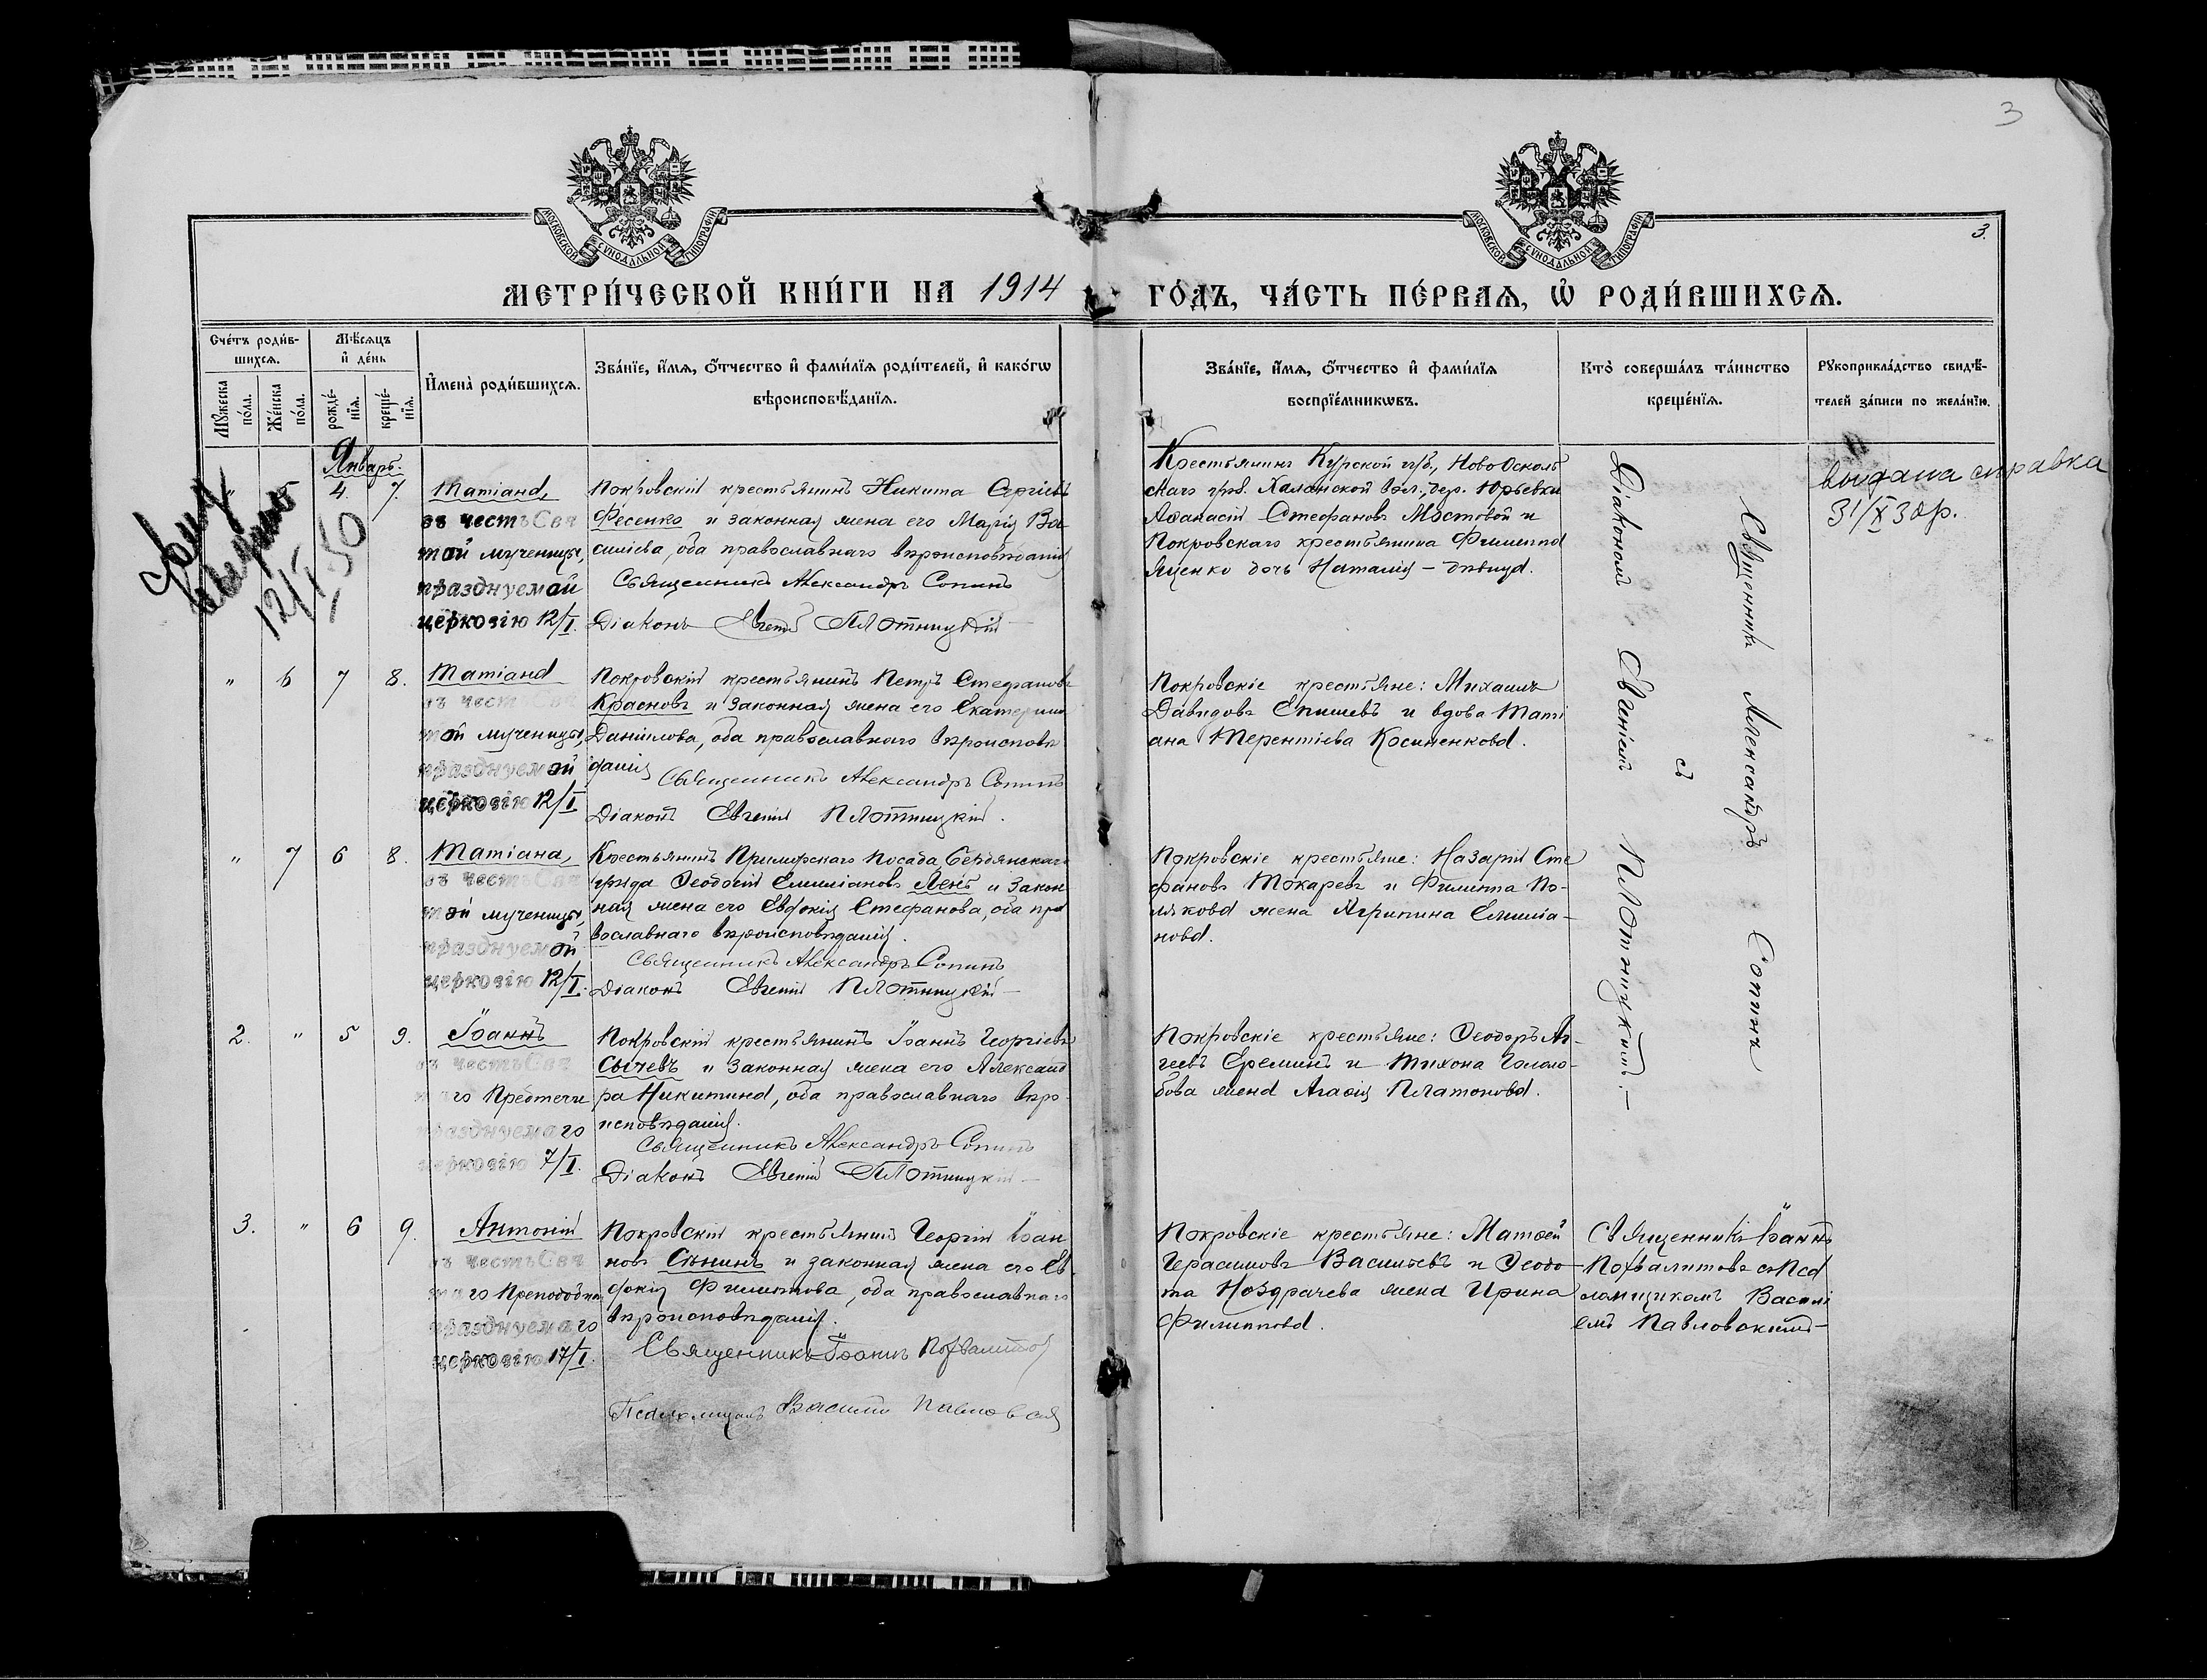 3
МОСКОВСКОЙ СѴНОДАЛЬНОЙ ТИПОГРАФІИ
МОСКОВСКОЙ СѴНОДАЛЬНОЙ ТИПОГРАФІИ
3.
МЕТРИ́ЧЕСКОЙ КНИ́ГИ НА 1914 ГО́ДЪ, ЧА́СТЬ ПЕ́РВАѦ, Ѡ҆ РОДИ́ВШИХСѦ.
Сче́тъ роди́в-
шихсѧ.
Мѣ́сѧцъ
и҆ де́нь
Мꙋ́жеска
по́ла.
Же́нска
по́ла.
рожде́-
нїѧ.
креще́-
нїѧ.
И҆мена̀ роди́вшихсѧ.
Зва́нїе, и҆́мѧ, ѻ҆́тчество и҆ фами́лїѧ роди́телей, и҆ како́гѡ
вѣроисповѣ́данїѧ.
Зва́нїе, и҆́мѧ, ѻ҆́тчество и҆ фами́лїѧ
воспрїе́мникѡвъ.
Кто̀ соверша́лъ та́инство
креще́нїѧ.
Рꙋкоприкла́дство свидѣ́-
телей за́писи по жела́нїю.
Январь.
" 4. 7. Татіана,
въ честь Свя
той мученицы,
празднуемой
церковію 12/I.
Покровскій крестьянинъ Никита Сергіевъ
Фесенко и законная жена его Марія Ва
силіева, оба православнаго вѣроисповѣданія
Священникъ Александръ Сопинъ
Діаконъ Евгеній Плотницкій
Крестьянинъ Курской губ., НовоОсколь
скаго уѣз. Халанской вол., дер. Юрьевки
Аѳанасій Стефановъ Мостовой и
Покровскаго крестьянина Филиппа
Яценко дочь Наталія – дѣвица.
Діакономъ Евгеніемъ Плотницкимъ. –
съ
Священникъ Александръ Сопинъ
выдана справка
31/X 30 р.
12/I 50
" 6 7 8. Татіана
въ честь Свя
той мученицы,
празднуемой
церковію 12/I
Покровскій крестьянинъ Петръ Стефановъ
Красновъ и законная жена его Екатерина
Даніилова, оба православнаго вѣроисповѣ
данія
Священникъ Александръ Сопинъ
Діаконъ Евгеній Плотницкій.
Покровскіе крестьяне: Михаилъ
Давидовъ Епишевъ и вдова Тати
ана Терентіева Косиненкова.
" 7 6 8. Татіана,
въ честь Свя
той мученицы,
празднуемой
церковію 12/I.
Крестьянинъ Приморскаго Посада, Бердянскаго
уѣзда Ѳеодосій Емиліановъ Лень и закон
ная жена его Евдокія Стефанова, оба пра
вославнаго вѣроисповѣданія.
Священникъ Александръ Сопинъ
Діаконъ Евгеній Плотницкій –
Покровскіе крестьяне: Назарій Сте
фановъ Токаревъ и Филиппа По-
лякова жена Агрипина Емилiа-
нова.
2. " 5 9. Іоаннъ
въ честь Свя
таго Предтечи
празднуемаго
церковію 7/I.
Покровскій крестьянинъ Іоаннъ Георгіевъ
Сычевъ и законная жена его Александ
ра Никитина, оба православнаго вѣро-
исповѣданія.
Священникъ Александръ Сопинъ
Діаконъ Евгеній Плотницкій –
Покровскіе крестьяне: Ѳеодоръ Ав-
геевъ Ереминъ и Тихона Гололо-
бова жена Агафія Платонова.
3. " 6 9. Антоній
въ честь Свя
таго Преподобнаго
празднуемаго
церковію 17/I.
Покровскій крестьянинъ Георгій Іоан
новъ Сѣнинъ и законная жена его Ев-
докія Филиппова, оба православнаго
вѣроисповѣданія.
Священникъ Іоаннъ Похвалитовъ
Псаломщикъ Василій Павловскій
Покровскіе крестьяне: Матѳей
Герасимовъ Васильевъ и Ѳеодо-
та Ноздрачева жена Ирина
Филиппова.
Священникъ Іоаннъ
Похвалитовъ съ Пса
ломщикомъ Васили
емъ Павловскимъ –